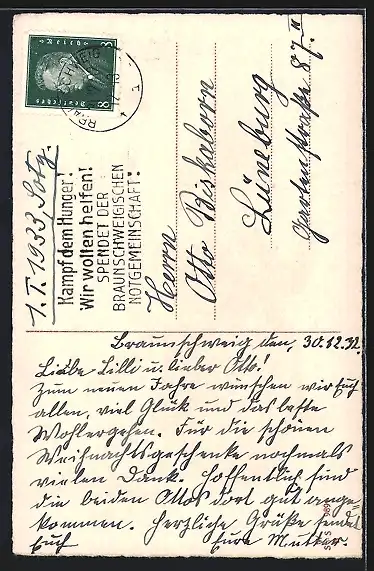 8 Deutsches Reich 8
1.I.1933. Sotg.
Kampf dem Hunger!
Wir wollen helfen!
SPENDET DER
BRAUNSCHWEIGISCHEN
NOTGEMEINSCHAFT!
Herrn
Otto Biskaborn
Lüneburg
Gartenstraße 87.II
Braunschweig den, 30.12.32.
Liebe Lilli u. lieber Otto!
Zum neuen Jahre wünschen wir Euch
allen, viel Glück und das beste
Wohlergehen. Für die schönen
Weihnachtsgeschenke nochmals
vielen Dank. Hoffentlich sind
die beiden Ottos dort gut ange=
kommen. Herzliche Grüße sendet
Euch Eure Mutter.